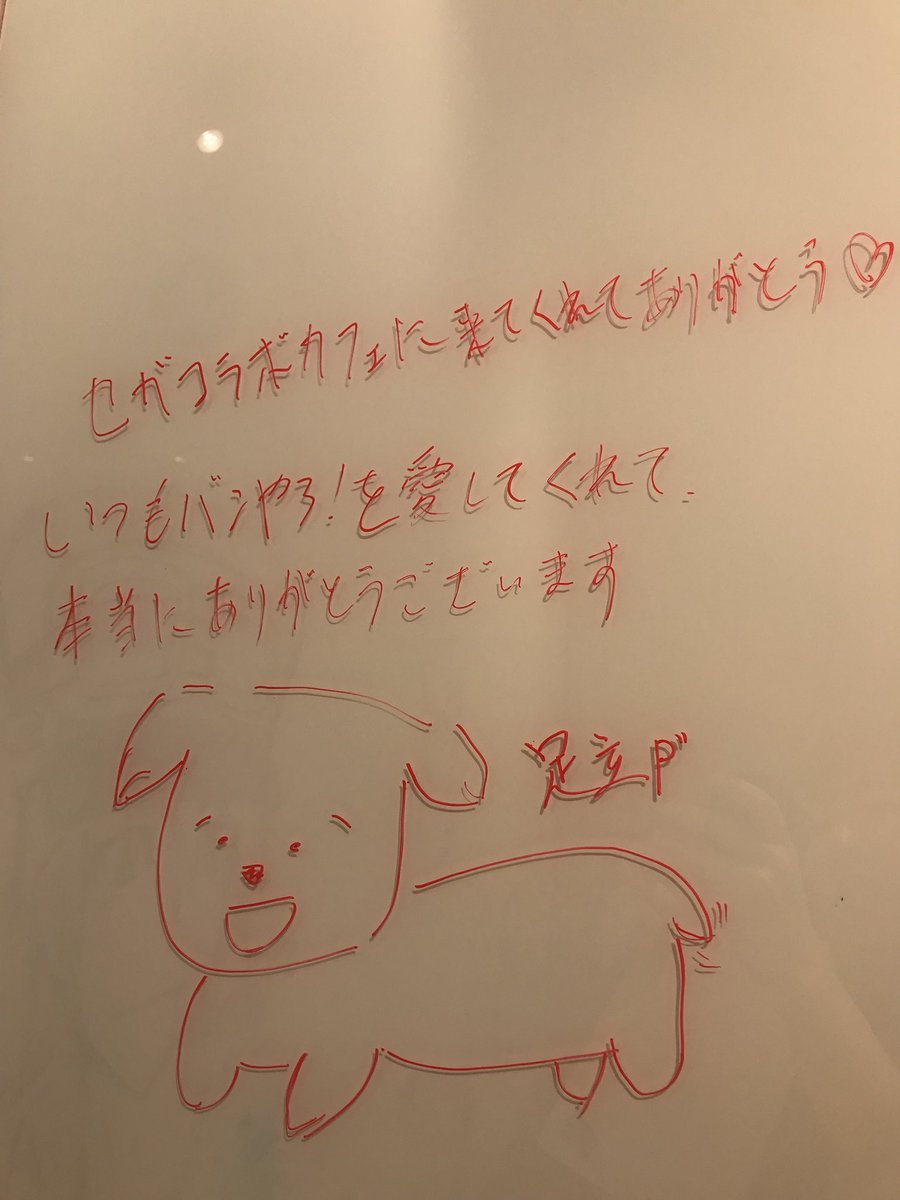 セガコラボカフェに来てくれてありがとう♡
いつもバンやろ!を愛してくれて、
本当にありがとうございます
足立P